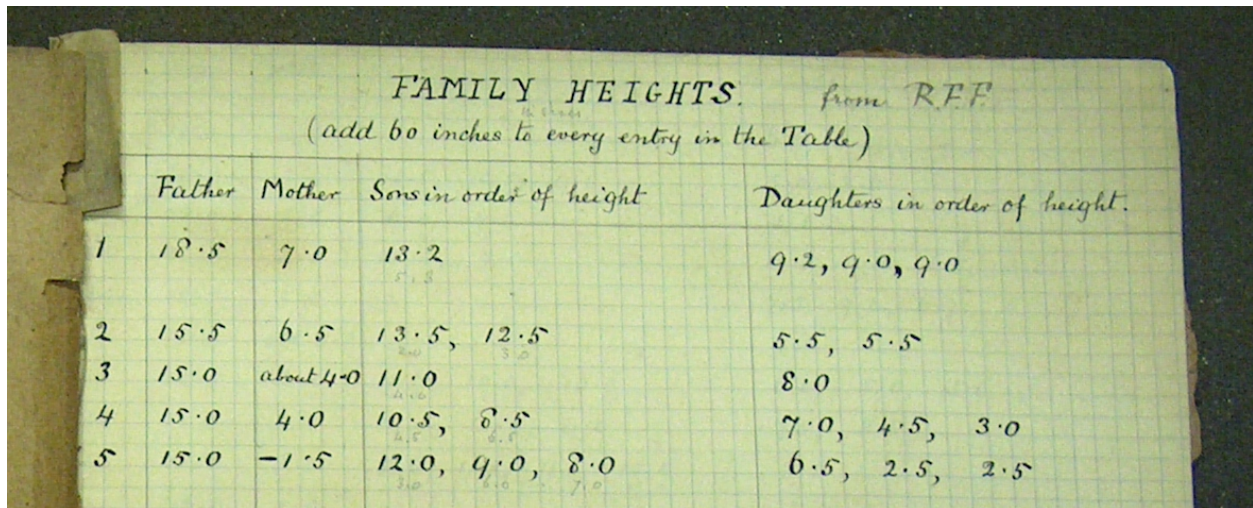 FAMILY HEIGHTS. from R.F.F.
(add 60 inches to every entry in the Table)
Father Mother Sons in order of height Daughters in order of height.
1 18·5 7·0 13·2 9·2, 9·0, 9·0
2 15·5 6·5 13·5, 12·5 5·5, 5·5
3 15·0 about 4·0 11·0 8·0
4 15·0 4·0 10·5, 8·5 7·0, 4·5, 3·0
5 15·0 -1·5 12·0, 9·0, 8·0 6·5, 2·5, 2·5